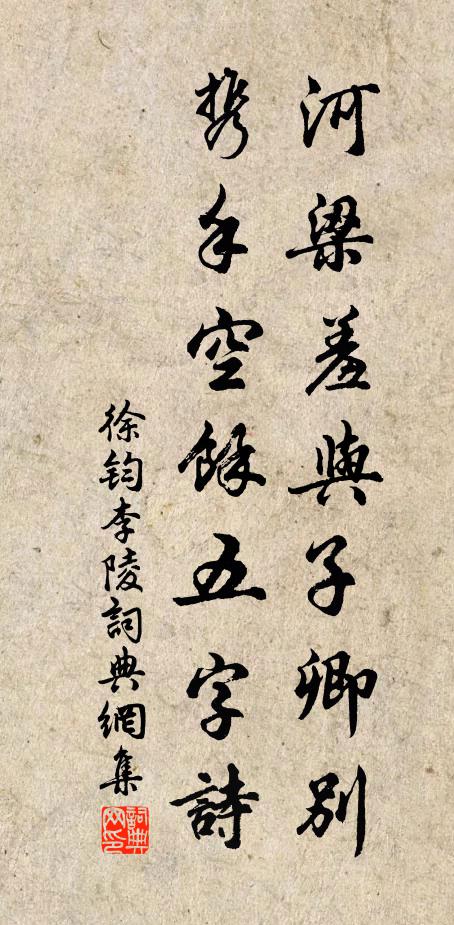 河梁羞與子卿別
携手空餘五字詩
徐鈞李陵詞典網集
詞典網印